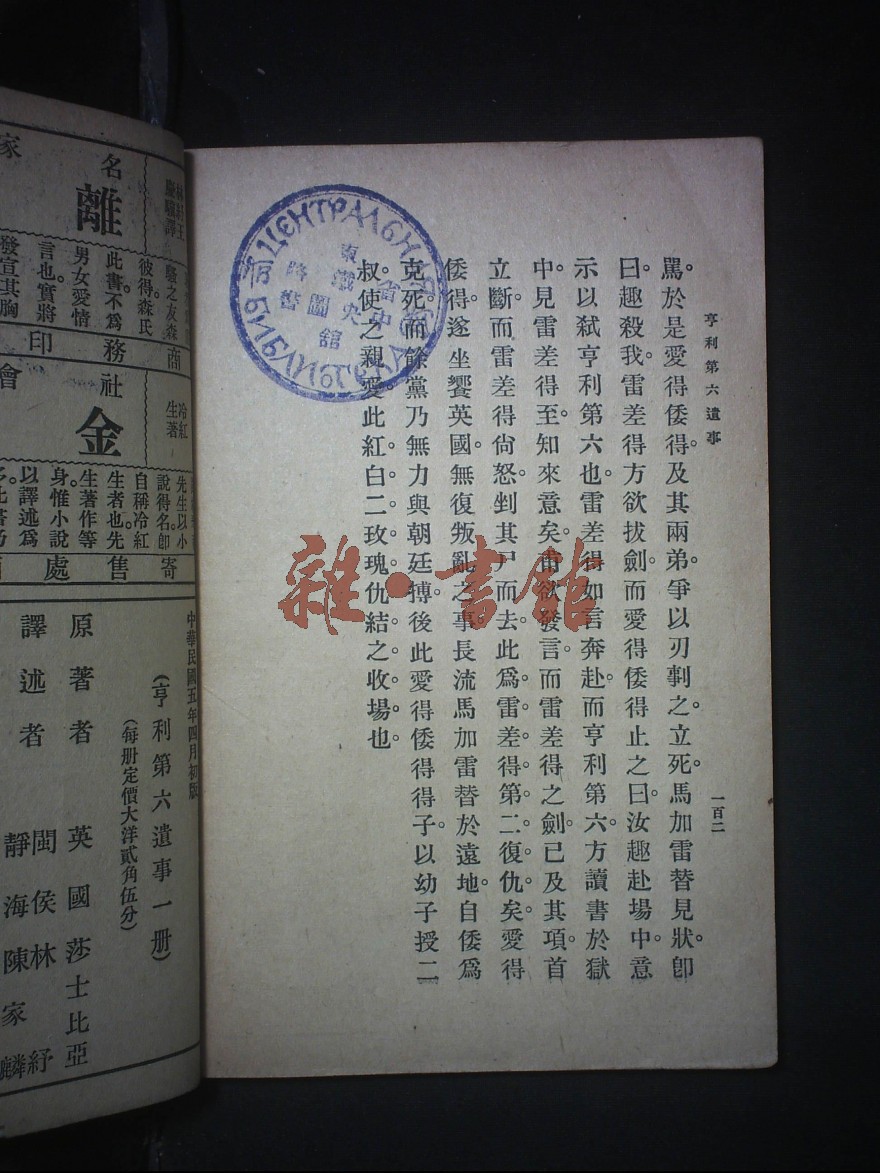 亨利第六遺事
一百二
罵。於是愛得倭得。及其兩弟。爭以刃剚之。立死。馬加雷替見狀。卽
曰。趣殺我。雷差得方欲拔劍。而愛得倭得止之曰。汝趣赴塲中。意
示以弒亨利第六也。雷差得如言奔赴。而亨利第六方讀書於獄
中。見雷差得至。知來意矣。甫欲發言。而雷差得之劍。已及其項。首
立斷。而雷差得尙怒。剉其尸而去。此爲雷差得第二復仇矣。愛得
倭得。遂坐饗英國。無復叛亂之事。長流馬加雷替於遠地。自倭爲
克死。而餘黨乃無力與朝廷搏。後此愛得倭得得子。以幼子授二
叔。使之親愛。此紅白二玫瑰仇結之收場也。
ЦЕНТРАЛЬНАЯ
БИБЛИОТЕКА
東省
鐵中
路央
圖
書
館
雜·書館
家
名
離
林紓王
慶驥譯
騷之友森
彼得森氏
此書不爲
男女愛情
言也。實將
發宣其胸
商
務
印
社
會
金
冷紅
生著
先生以小
說得名。卽
自稱冷紅
生者也。先
生著作等
身。惟小說
以譯述爲
多。此書乃
寄售處
中華民國五年四月初版
（亨利第六遺事一册）
（每册定價大洋貳角伍分）
原著者 英國莎士比亞
譯述者 閩侯林紓
靜海陳家麟